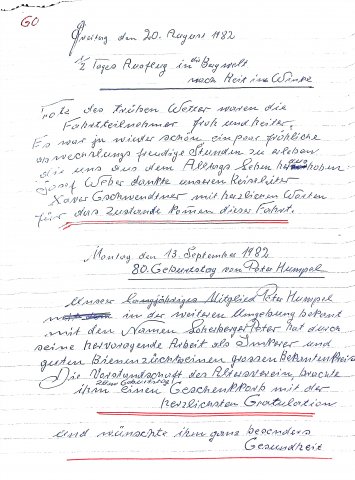 60
Freitag den 20. August 1982
1/2 Tages Ausflug in die Bergwelt
nach Reit im Winkl
Trotz des trüben Wetter waren die
Fahrtteilnehmer froh und heiter.
Es war ja wieder schön ein paar fröhliche
abwechslungs freudige Stunden zu erleben
die uns aus dem Alltags Leben heraus hoben
Josef Weber dankte unseren Reiseleiter
Xaver Gschwendtner mit herzlichen Worten
für das zustande komen dieser Fahrt.
Montag den 13. September 1982
80. Geburtstag von Peter Humpel
Unser langjähriges Mitglied Peter Humpel
in der weiteren Umgebung bekant
mit den Namen Peter hat durch
seine hervoragende Arbeit als Imkerer und
guten Bienenzüchter einen grossen Bekantenkreis
Die Vorstandschaft des Altersverein, brachte
zum Geburtstag
ihm einen Geschenkkorb mit der
herzlichsten Gratulation
und wünschte ihm ganz besonders
Gesundheit